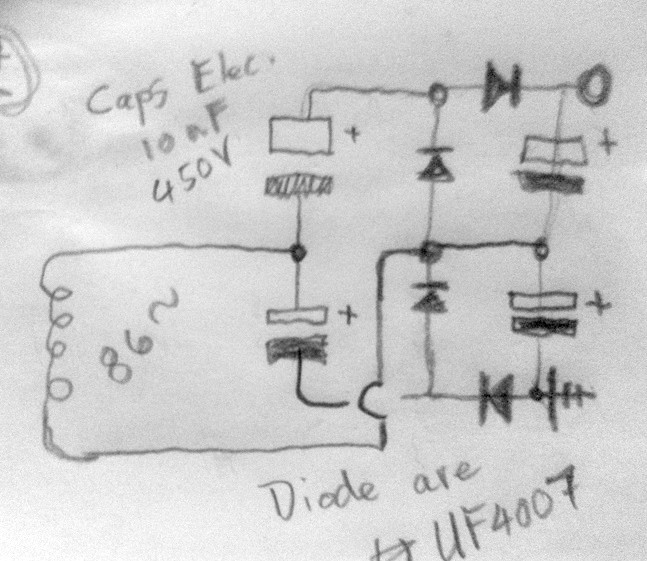 Caps Elec.
10 nF
450V
+
+
+
+
86~
Diode are
# UF4007